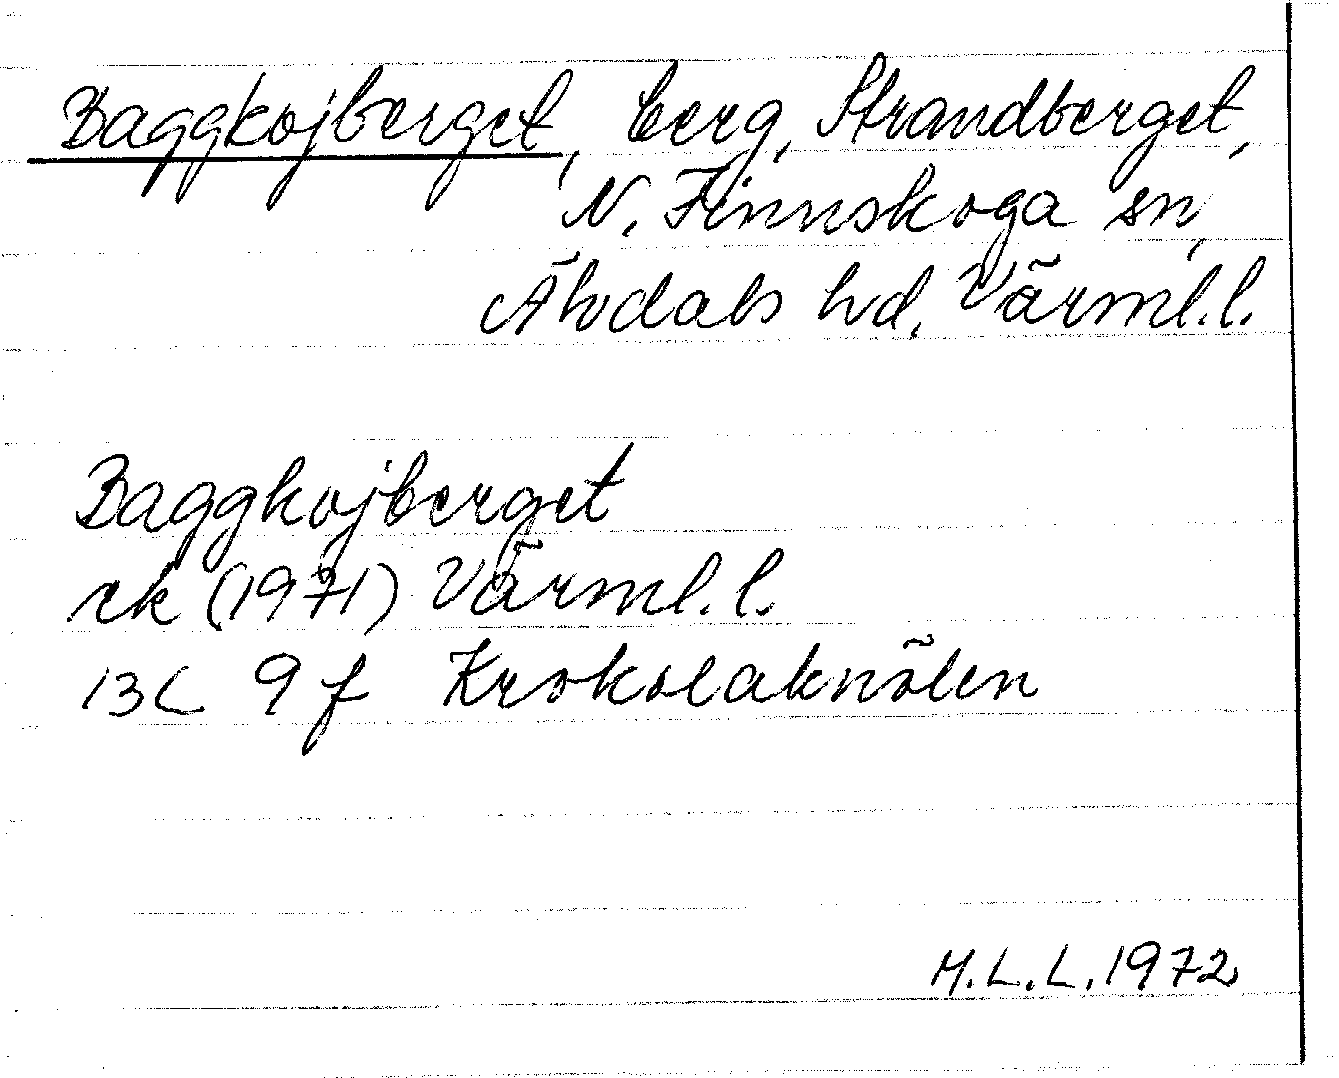 Baggkojberget, berg, Strandberget,
N. Finnskoga sn,
Älvdals hd, Värml.l.
Baggkojberget
ek (1971) Värml.l.
13C 9f Krokolaknölen
M.L.L. 1972